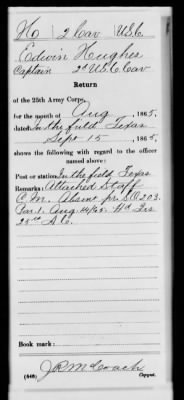 H 2 Cav U.S.C.
Edwin Hughes
Captain 2d U.S.C. Cav
Return
of the 25th Army Corps,
for the month of Aug, 1865,
dated In the field, Texas
Sept 15, 1865,
shows the following with regard to the officer
named above:
Post or station, In the field, Texas
Remarks: Attached Staff
C.M. Absent pr. S.O. 203.
Par. 1. Aug. 14/65. Hd Qrs
25th A.C.
Book mark:
(446) Copyist.